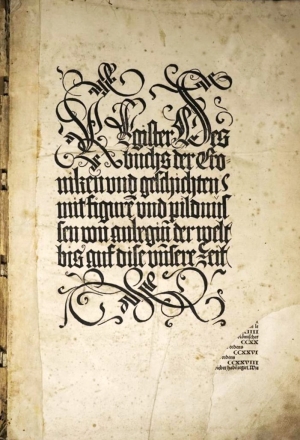 REgister Des
buchs der Cro-
niken vnd geschichten
mit figurē vnd pildnus-
sen von anbegiñ der welt
bis auf dise vnsere zeit
IIII
CCXX
ordens
CCXXVI
ordens
CCXXVIII